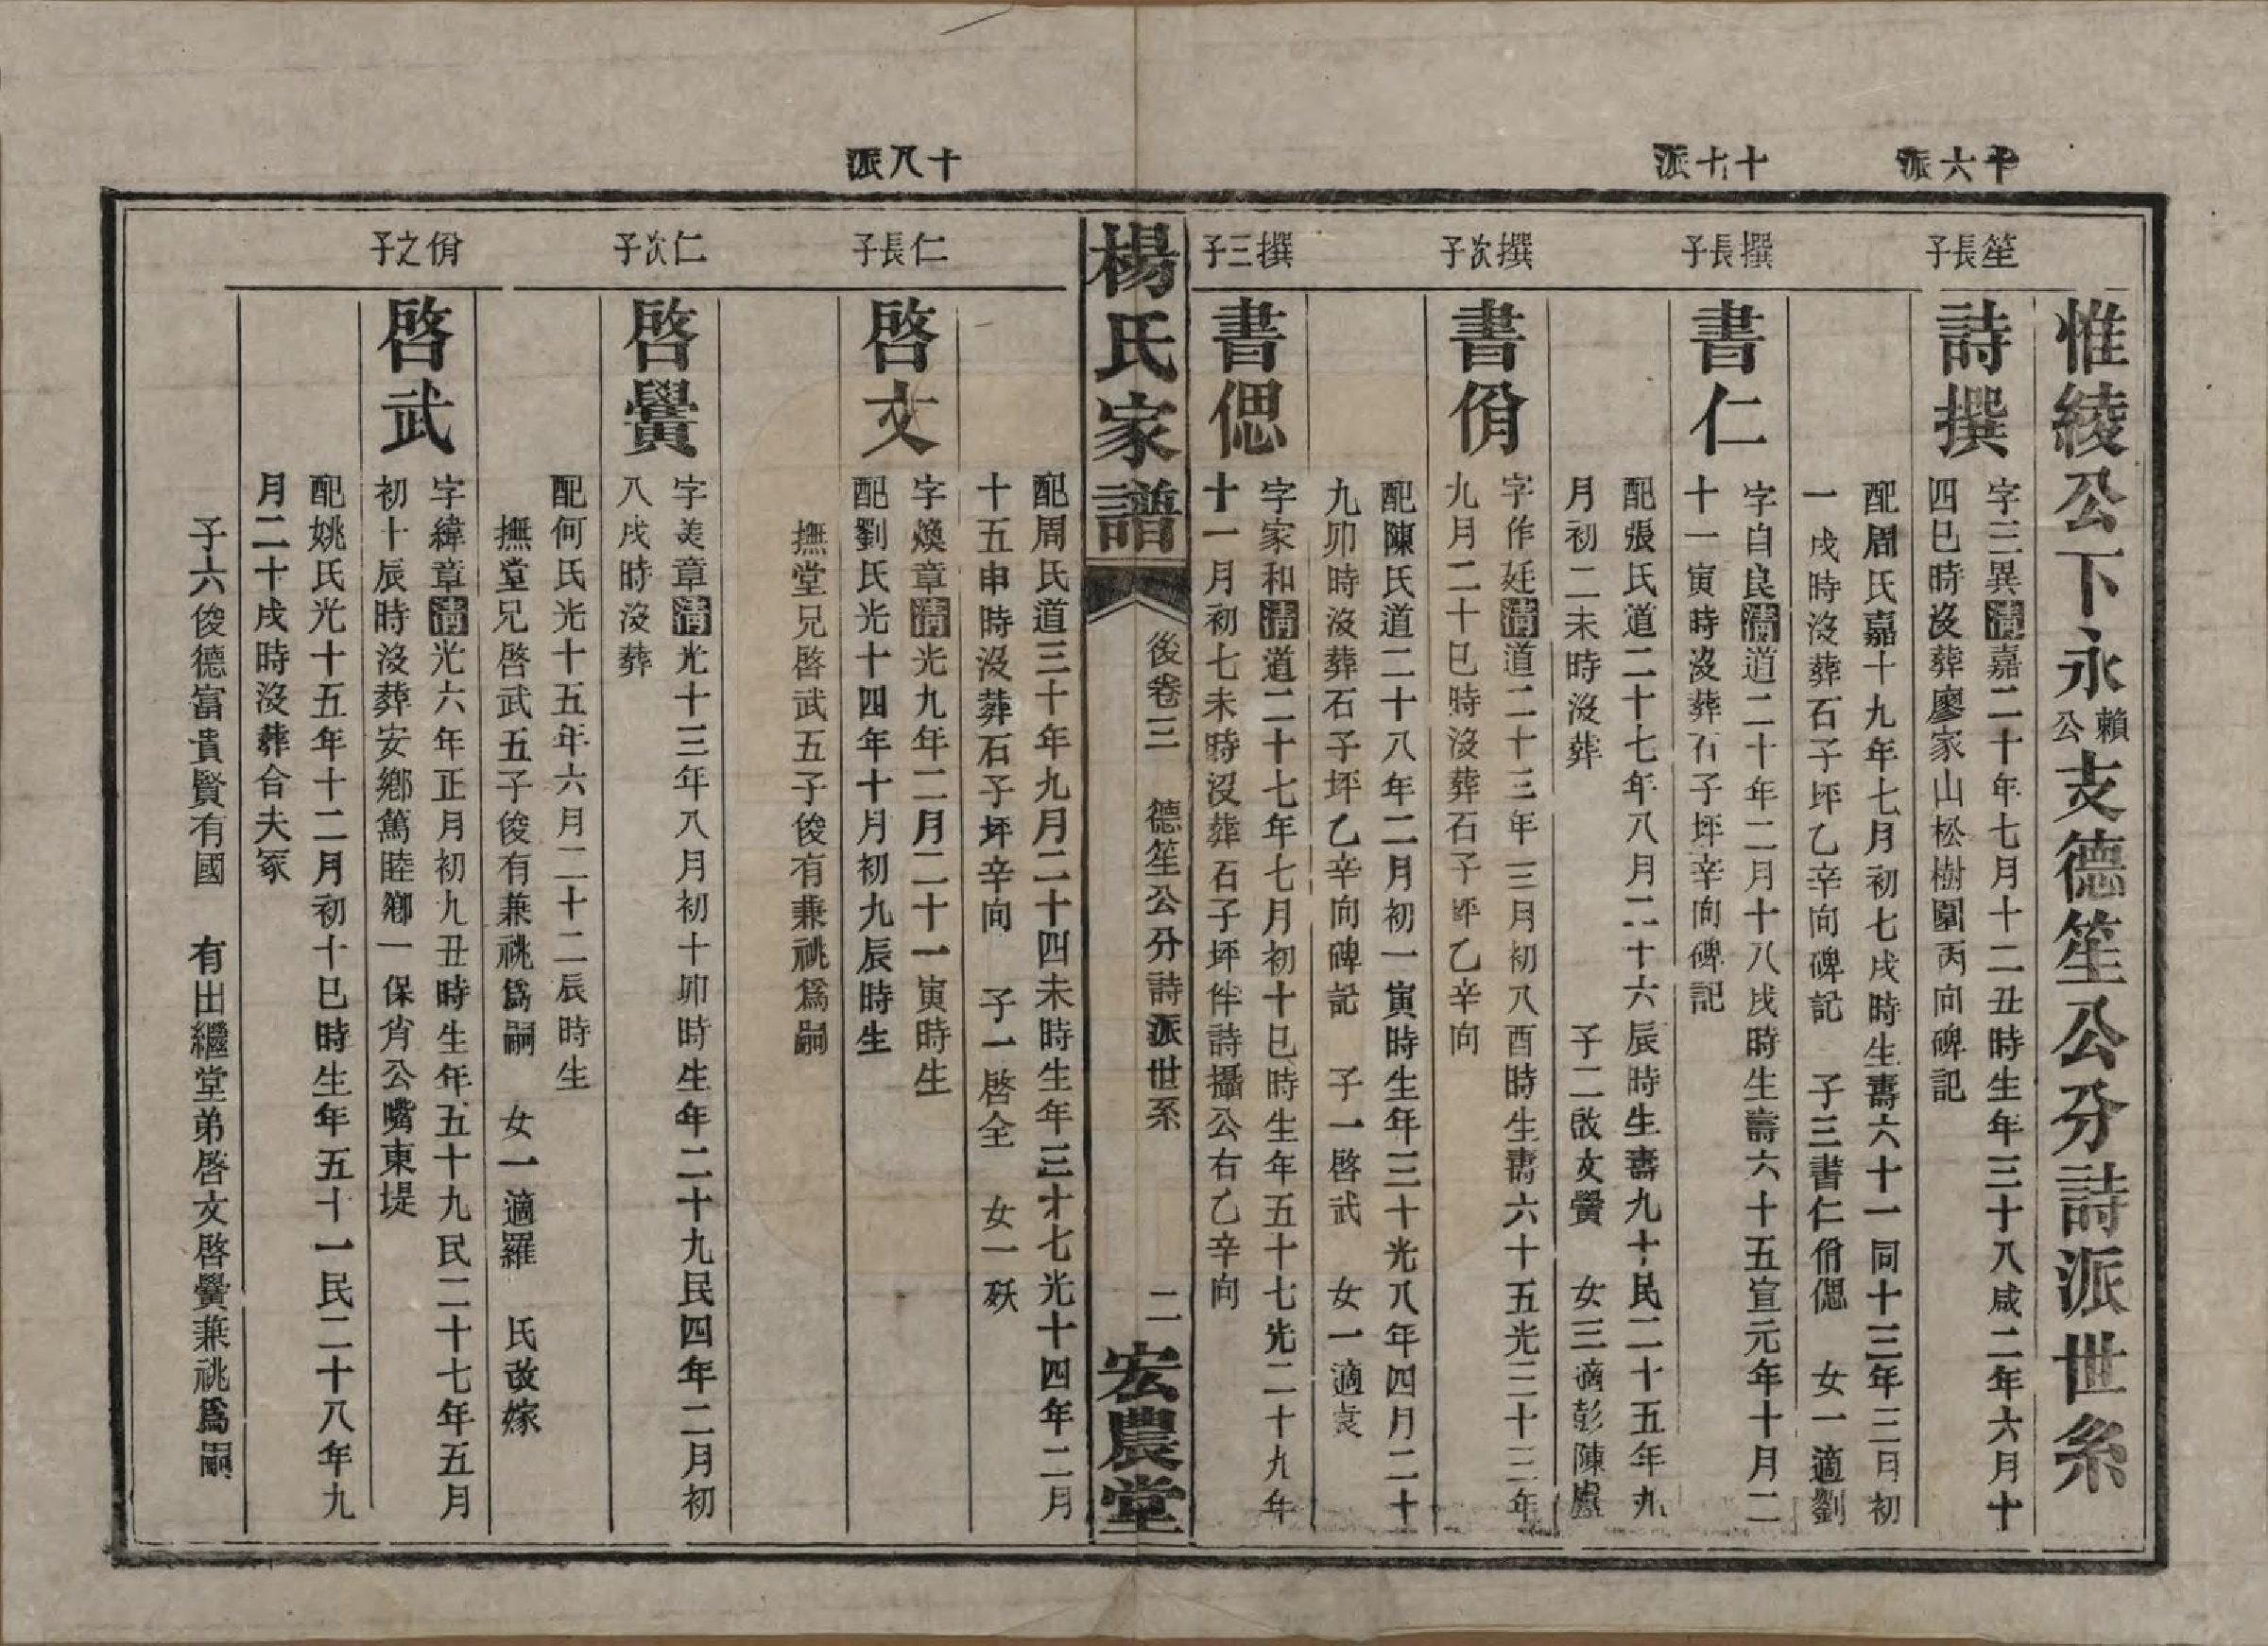 十六派
十七派
十八派
惟綾公下永賴公支德笙公分詩派世系
笙長子
詩撰
字三異清嘉二十年七月十二丑時生年三十八咸二年六月十
四巳時沒葬廖家山松樹園丙向碑記
配周氏嘉十九年七月初七戌時生壽六十一同十三年三月初
一戌時沒葬石子坪乙辛向碑記 子三書仁佾偲 女一適劉
撰長子
書仁
字自良清道二十年二月十八戌時生壽六十五宣元年十月二
十一寅時沒葬石子坪辛向碑記
配張氏道二十七年八月二十六辰時生壽九十民二十五年九
月初二未時沒葬 子二啟文黌 女三適彭陳盧
撰次子
書佾
字作廷清道二十三年三月初八酉時生壽六十五光三十三年
九月二十巳時沒葬石子坪乙辛向
配陳氏道二十八年二月初一寅時生年三十光八年四月二十
九卯時沒葬石子坪乙辛向碑記 子一啓武 女一適袁
撰三子
書偲
字家和清道二十七年七月初十巳時生年五十七光二十九年
十一月初七未時沒葬石子坪伴詩攝公右乙辛向
楊氏家譜
後卷三 德笙公分詩派世系
二
宏農堂
配周氏道三十年九月二十四未時生年三十七光十四年二月
十五申時沒葬石子坪辛向 子一啓全 女一殀
仁長子
啓文
字煥章清光九年二月二十一寅時生
配劉氏光十四年十月初九辰時生
撫堂兄啓武五子俊有兼祧爲嗣
仁次子
啓黌
字美章清光十三年八月初十卯時生年二十九民四年二月初
八戌時沒葬
配何氏光十五年六月二十二辰時生
撫堂兄啓武五子俊有兼祧爲嗣 女一適羅 氏改嫁
佾之子
啓武
字緯章清光六年正月初九丑時生年五十九民二十七年五月
初十辰時沒葬安鄉萬睦鄉一保肖公嘴東堤
配姚氏光十五年十二月初十巳時生年五十一民二十八年九
月二十戌時沒葬合夫冢
子六俊德富貴賢有國 有出繼堂弟啓文啓黌兼祧爲嗣